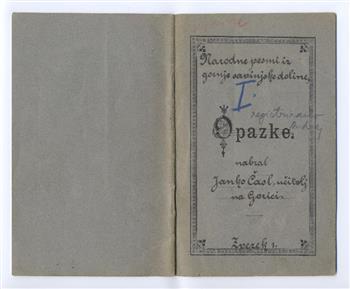 Narodne pesmi iz
gornje savinjske doline.
I.
Opazke.
nabral
Janko Časl, učitelj
na Gorici.
Zvezek 1.